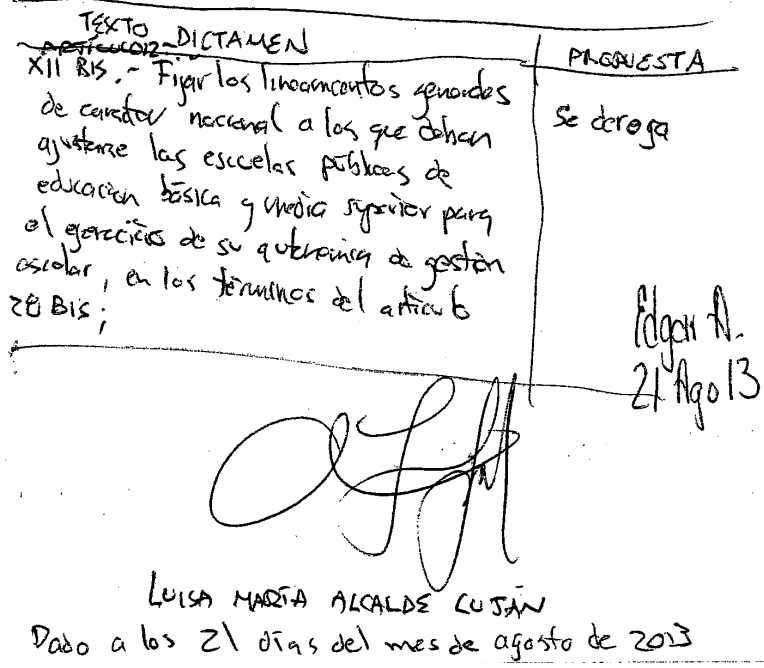 TEXTO DICTAMEN
ARTÍCULO 12
PROPUESTA
XII BIS.- Fijar los lineamientos generales
de carácter nacional a los que deban
ajustarse las escuelas públicas de
educación básica y media superior para
el ejercicio de su autonomía de gestión
escolar, en los términos del artículo
28 BIS;
Se deroga
Edgar A.
21 Ago 13
LUISA MARÍA ALCALDE LUJÁN
Dado a los 21 días del mes de agosto de 2013